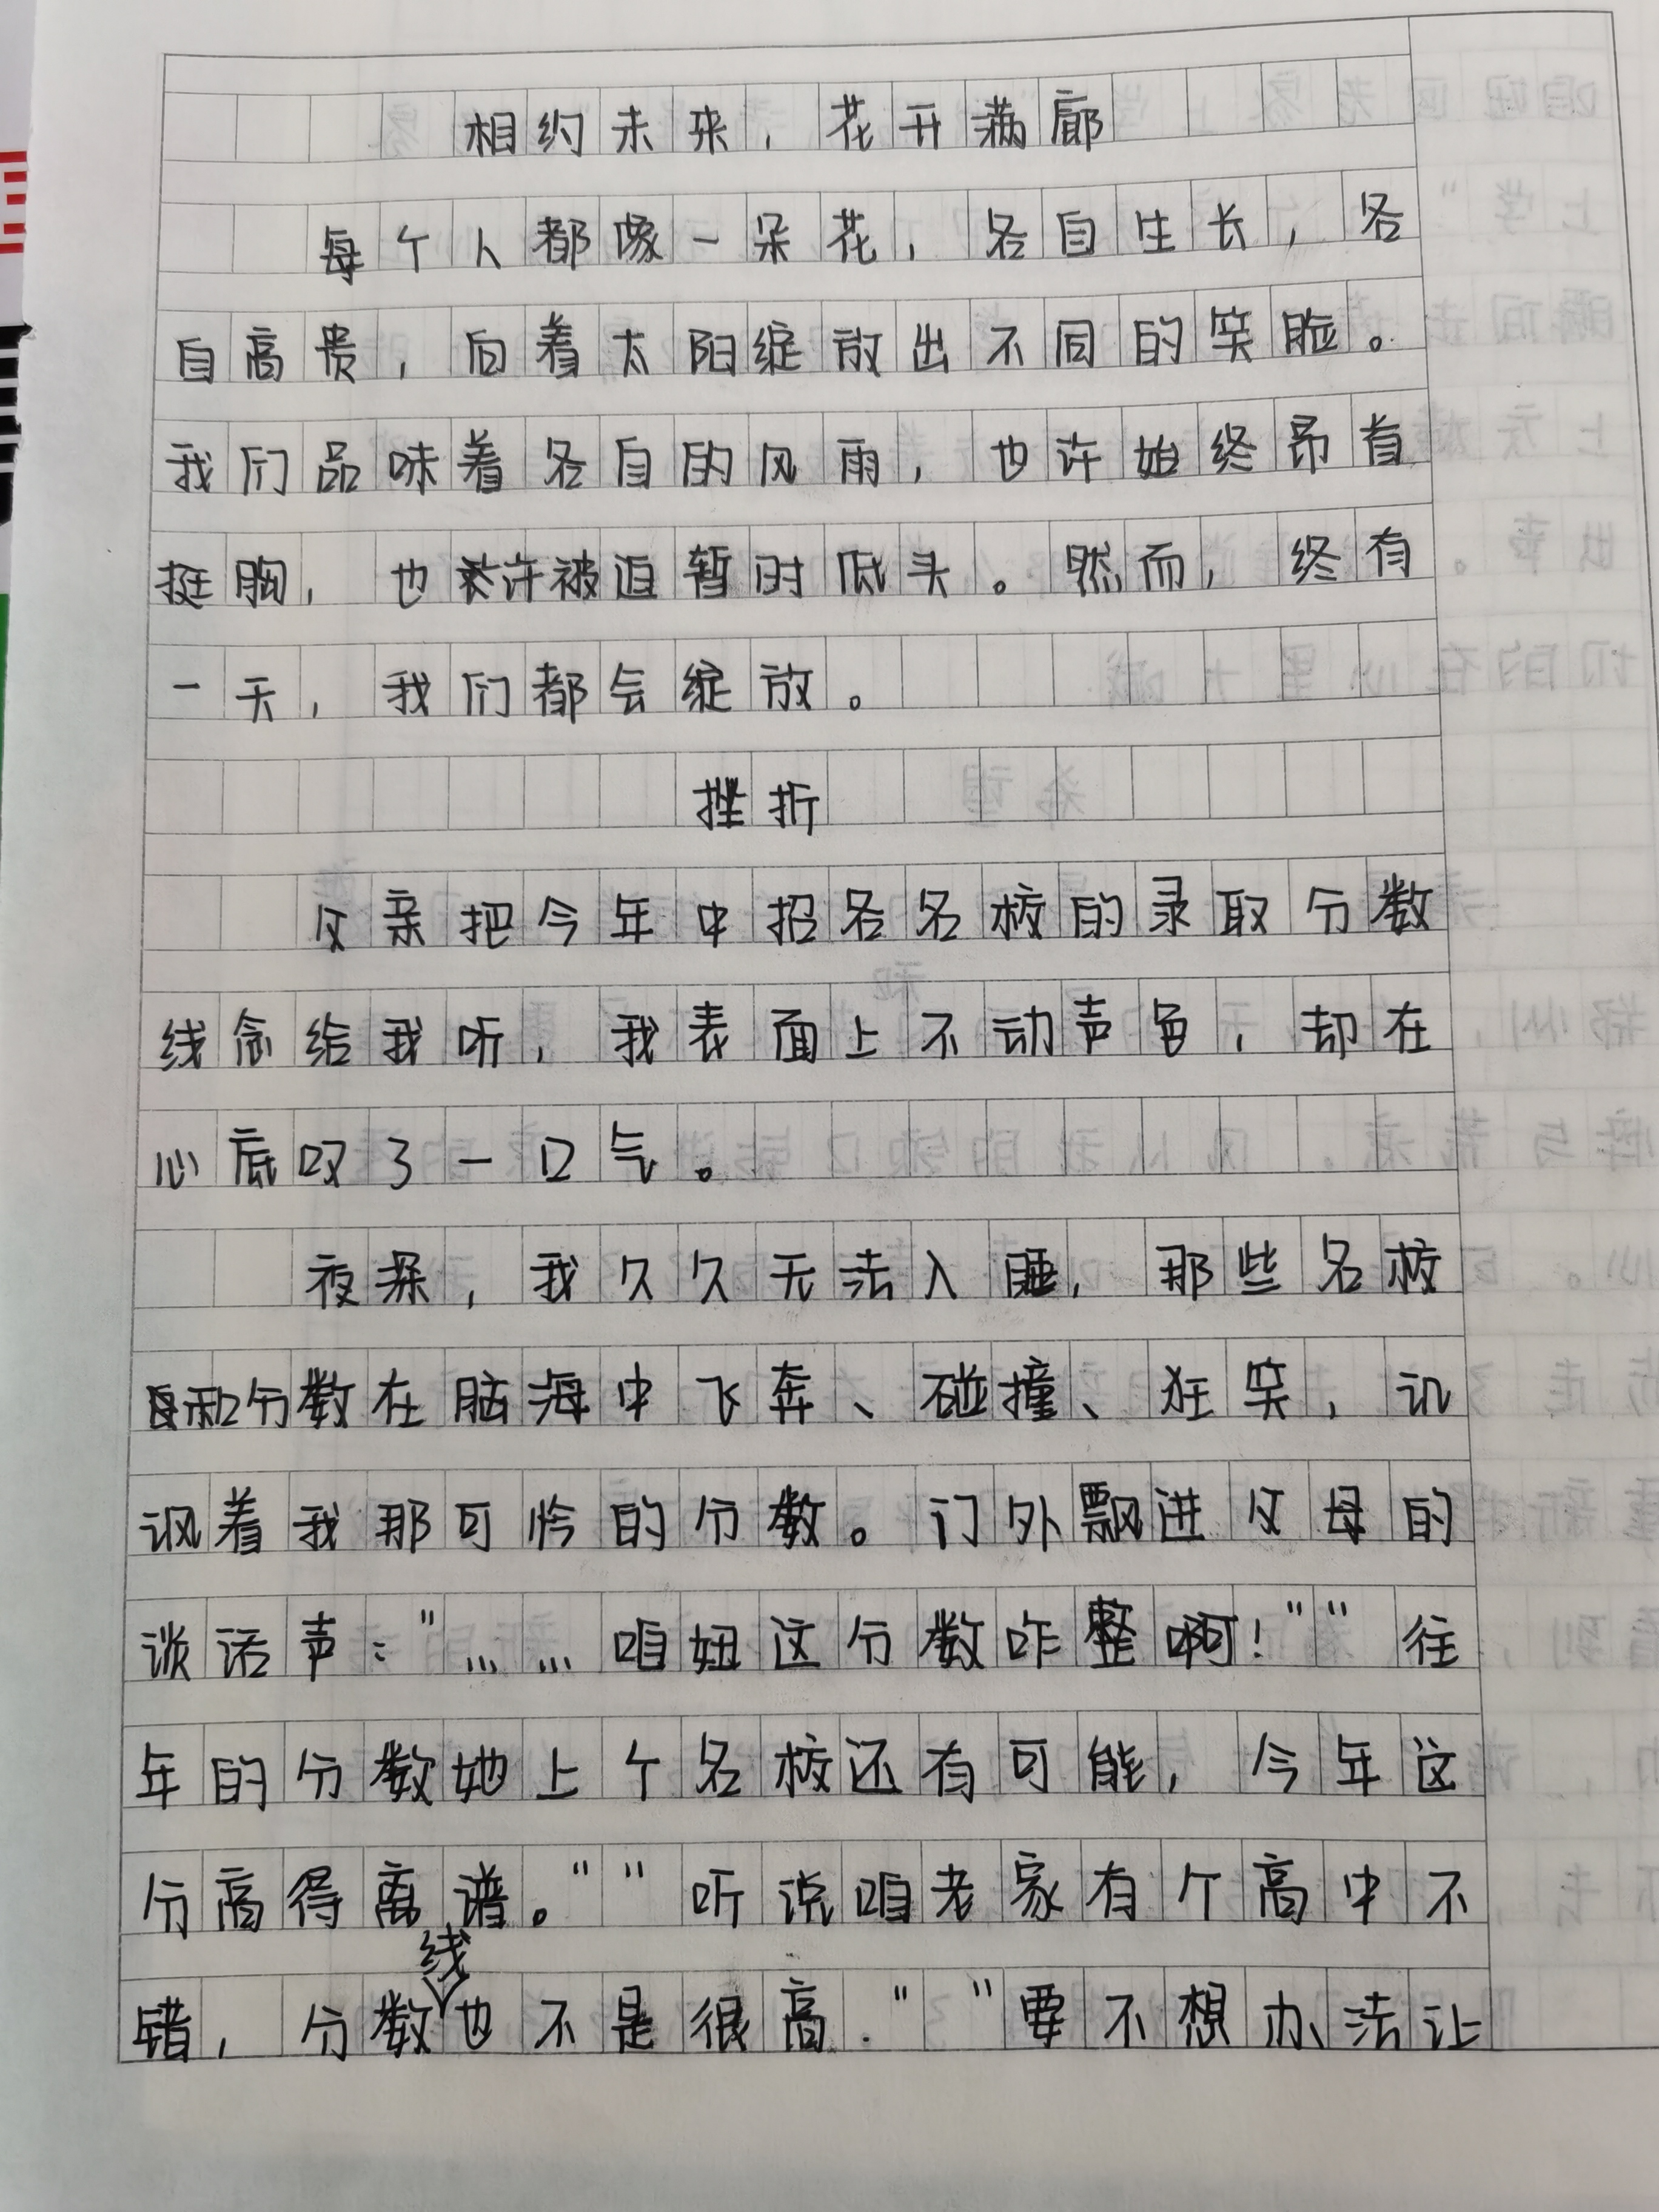 相约未来，花开满廊
每个人都像一朵花，各自生长，各
自高贵，向着太阳绽放出不同的笑脸。
我们品味着各自的风雨，也许始终昂首
挺胸，也许被迫暂时低头。然而，终有
一天，我们都会绽放。
挫折
父亲把今年中招各名校的录取分数
线念给我听，我表面上不动声色，却在
心底叹了一口气。
夜深，我久久无法入睡，那些名校
和分数在脑海中飞奔、碰撞、狂笑，讥
讽着我那可怜的分数。门外飘进父母的
谈话声："……咱妞这分数咋整啊！""往
年的分数她上个名校还有可能，今年这
分高得离谱。""听说咱老家有个高中不
错，分数线也不是很高.""要不想办法让